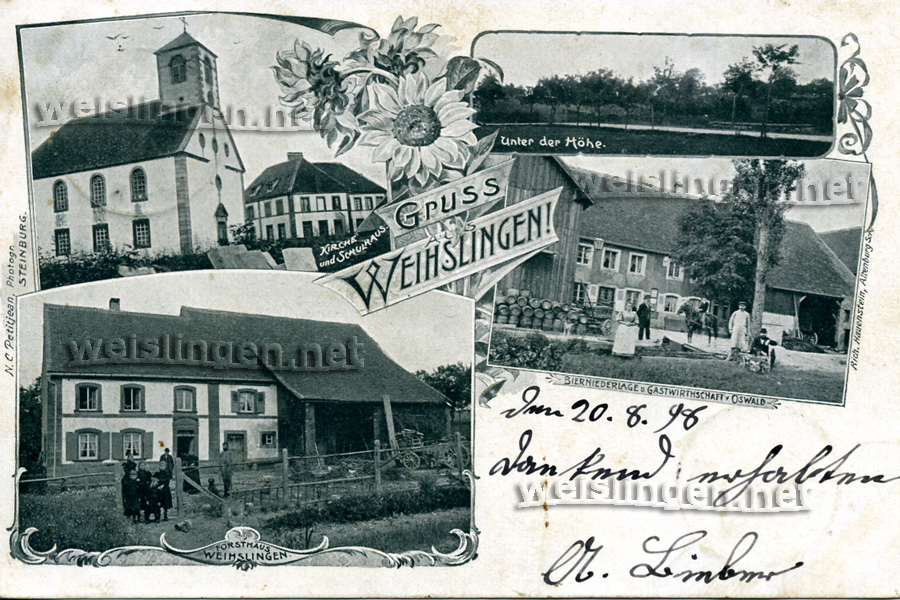 weislingen.net
Unter der Höhe.
weislingen.net
KIRCHE
und SCHULHAUS.
GRUSS
aus
WEIHSLINGEN!
N. C. Petitjean, Photogr.
STEINBURG.
Rich. Hauenstein, Altenburg S.A.
weislingen.net
BIERNIEDERLAGE u GASTWIRTHSCHAFT v OSWALD
Den 20.8.98
Dankend erhalten
weislingen.net
A.
FORSTHAUS
WEIHSLINGEN.